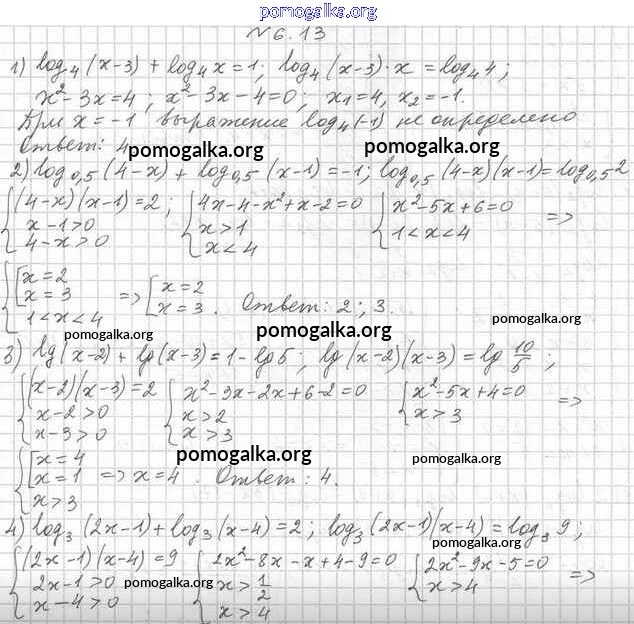 pomogalka.org
№ 6.13
1) log₄(x-3) + log₄x = 1; log₄(x-3)·x = log₄4;
x²-3x=4; x²-3x-4=0; x₁=4, x₂=-1.
При x=-1 выражение log₄(-1) не определено
Ответ: 4.
pomogalka.org pomogalka.org
2) log₀,₅(4-x) + log₀,₅(x-1) = -1; log₀,₅(4-x)(x-1) = log₀,₅2
{(4-x)(x-1)=2; {4x-4-x²+x-2=0 {x²-5x+6=0 =>
x-1>0 x>1 1<x<4
4-x>0 x<4
{[x=2
x=3 => [x=2
1<x<4 x=3. Ответ: 2; 3.
pomogalka.org pomogalka.org pomogalka.org
3) lg(x-2) + lg(x-3) = 1-lg5; lg(x-2)(x-3) = lg 10/5;
{(x-2)(x-3)=2 {x²-3x-2x+6-2=0 {x²-5x+4=0 =>
x-2>0 x>2 x>3
x-3>0 x>3
pomogalka.org pomogalka.org
{[x=4
x=1 => x=4. Ответ: 4.
x>3
4) log₃(2x-1) + log₃(x-4) = 2; log₃(2x-1)(x-4) = log₃9;
pomogalka.org
{(2x-1)(x-4)=9 {2x²-8x-x+4-9=0 {2x²-9x-5=0 =>
2x-1>0 x>1/2 x>4
x-4>0 x>4
pomogalka.org